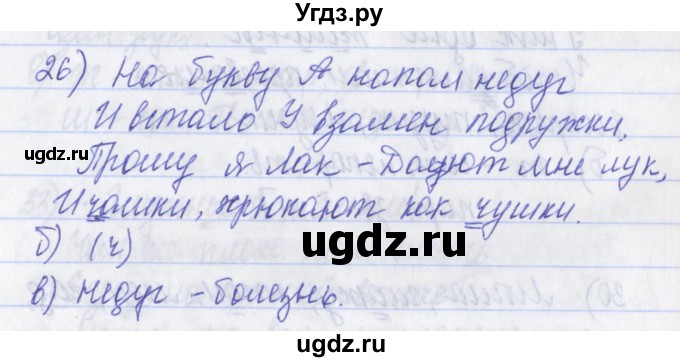 Угдз.ру
26) На букву А напал недуг
И встало У взамен подружки.
Прошу я лак – Дадут мне лук,
И чашки, хрюкают как чушки.
б) (ч)
в) недуг – болезнь.
ugdz.ru
ugdz.ru
ugdz.ru
ugdz.ru
ugdz.ru
ugdz.ru